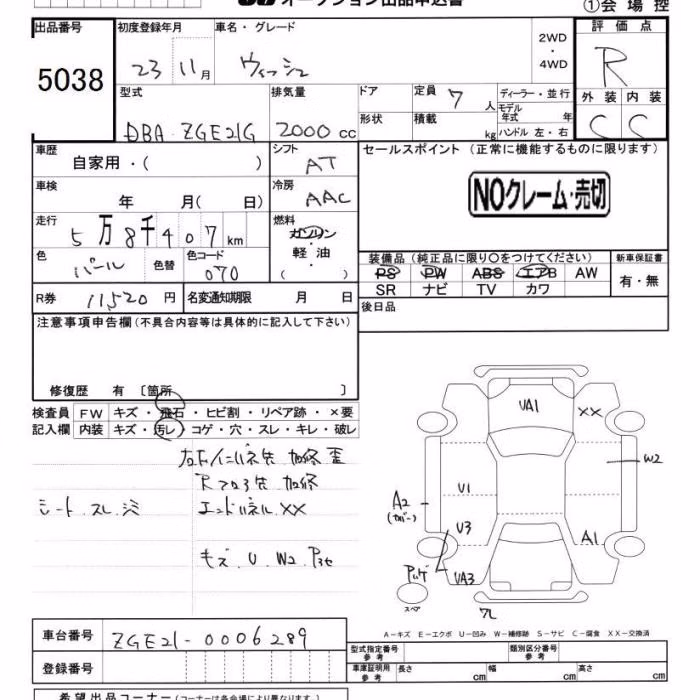 オークション出品申込書
①会場控
出品番号 5038
初度登録年月 23 11月
車名・グレード ウィッシュ
2WD・4WD
評価点 R
外装 C 内装 C
型式 DBA-ZGE21G
排気量 2000cc
ドア
形状
定員 7人
積載 kg
ディーラー・並行
モデル年式 年
ハンドル 左・右
車歴 自家用・( )
シフト AT
セールスポイント(正常に機能するものに限ります)
NOクレーム・売切
車検 年 月( 日)
冷房 AAC
走行 5万8千407km
燃料 ガソリン 軽油 ( )
色 パール 色替
色コード 070
装備品(純正品に限り○をつけてください)
新車保証書
PS PW ABS エアB AW
有・無
SR ナビ TV カワ
R券 11520円
名変通知期限 月 日
後日品
注意事項申告欄(不具合内容等は具体的に記入して下さい)
修復歴 有 〔箇所 〕
検査員記入欄
FW キズ・飛石・ヒビ割・リペア跡・×要
内装 キズ・汚レ・コゲ・穴・スレ・キレ・破レ
右F/インパネ先 加修 歪
Rフロア先 加修
シート スレ
エンドパネル XX
キズ U W2 Pセ
VA1
XX
W2
U1
A2
(カバー)
U3
A1
VA3
スペア
A-キズ E-エクボ U-凹み W-補修跡 S-サビ C-腐食 XX-交換済
車台番号 ZGE21-0006289
型式指定番号 参考
類別区分番号 参考
登録番号
車庫証明用 参考 長さ cm 幅 cm 高さ cm
希望出品コーナー(コーナーは各会場により異なります。)